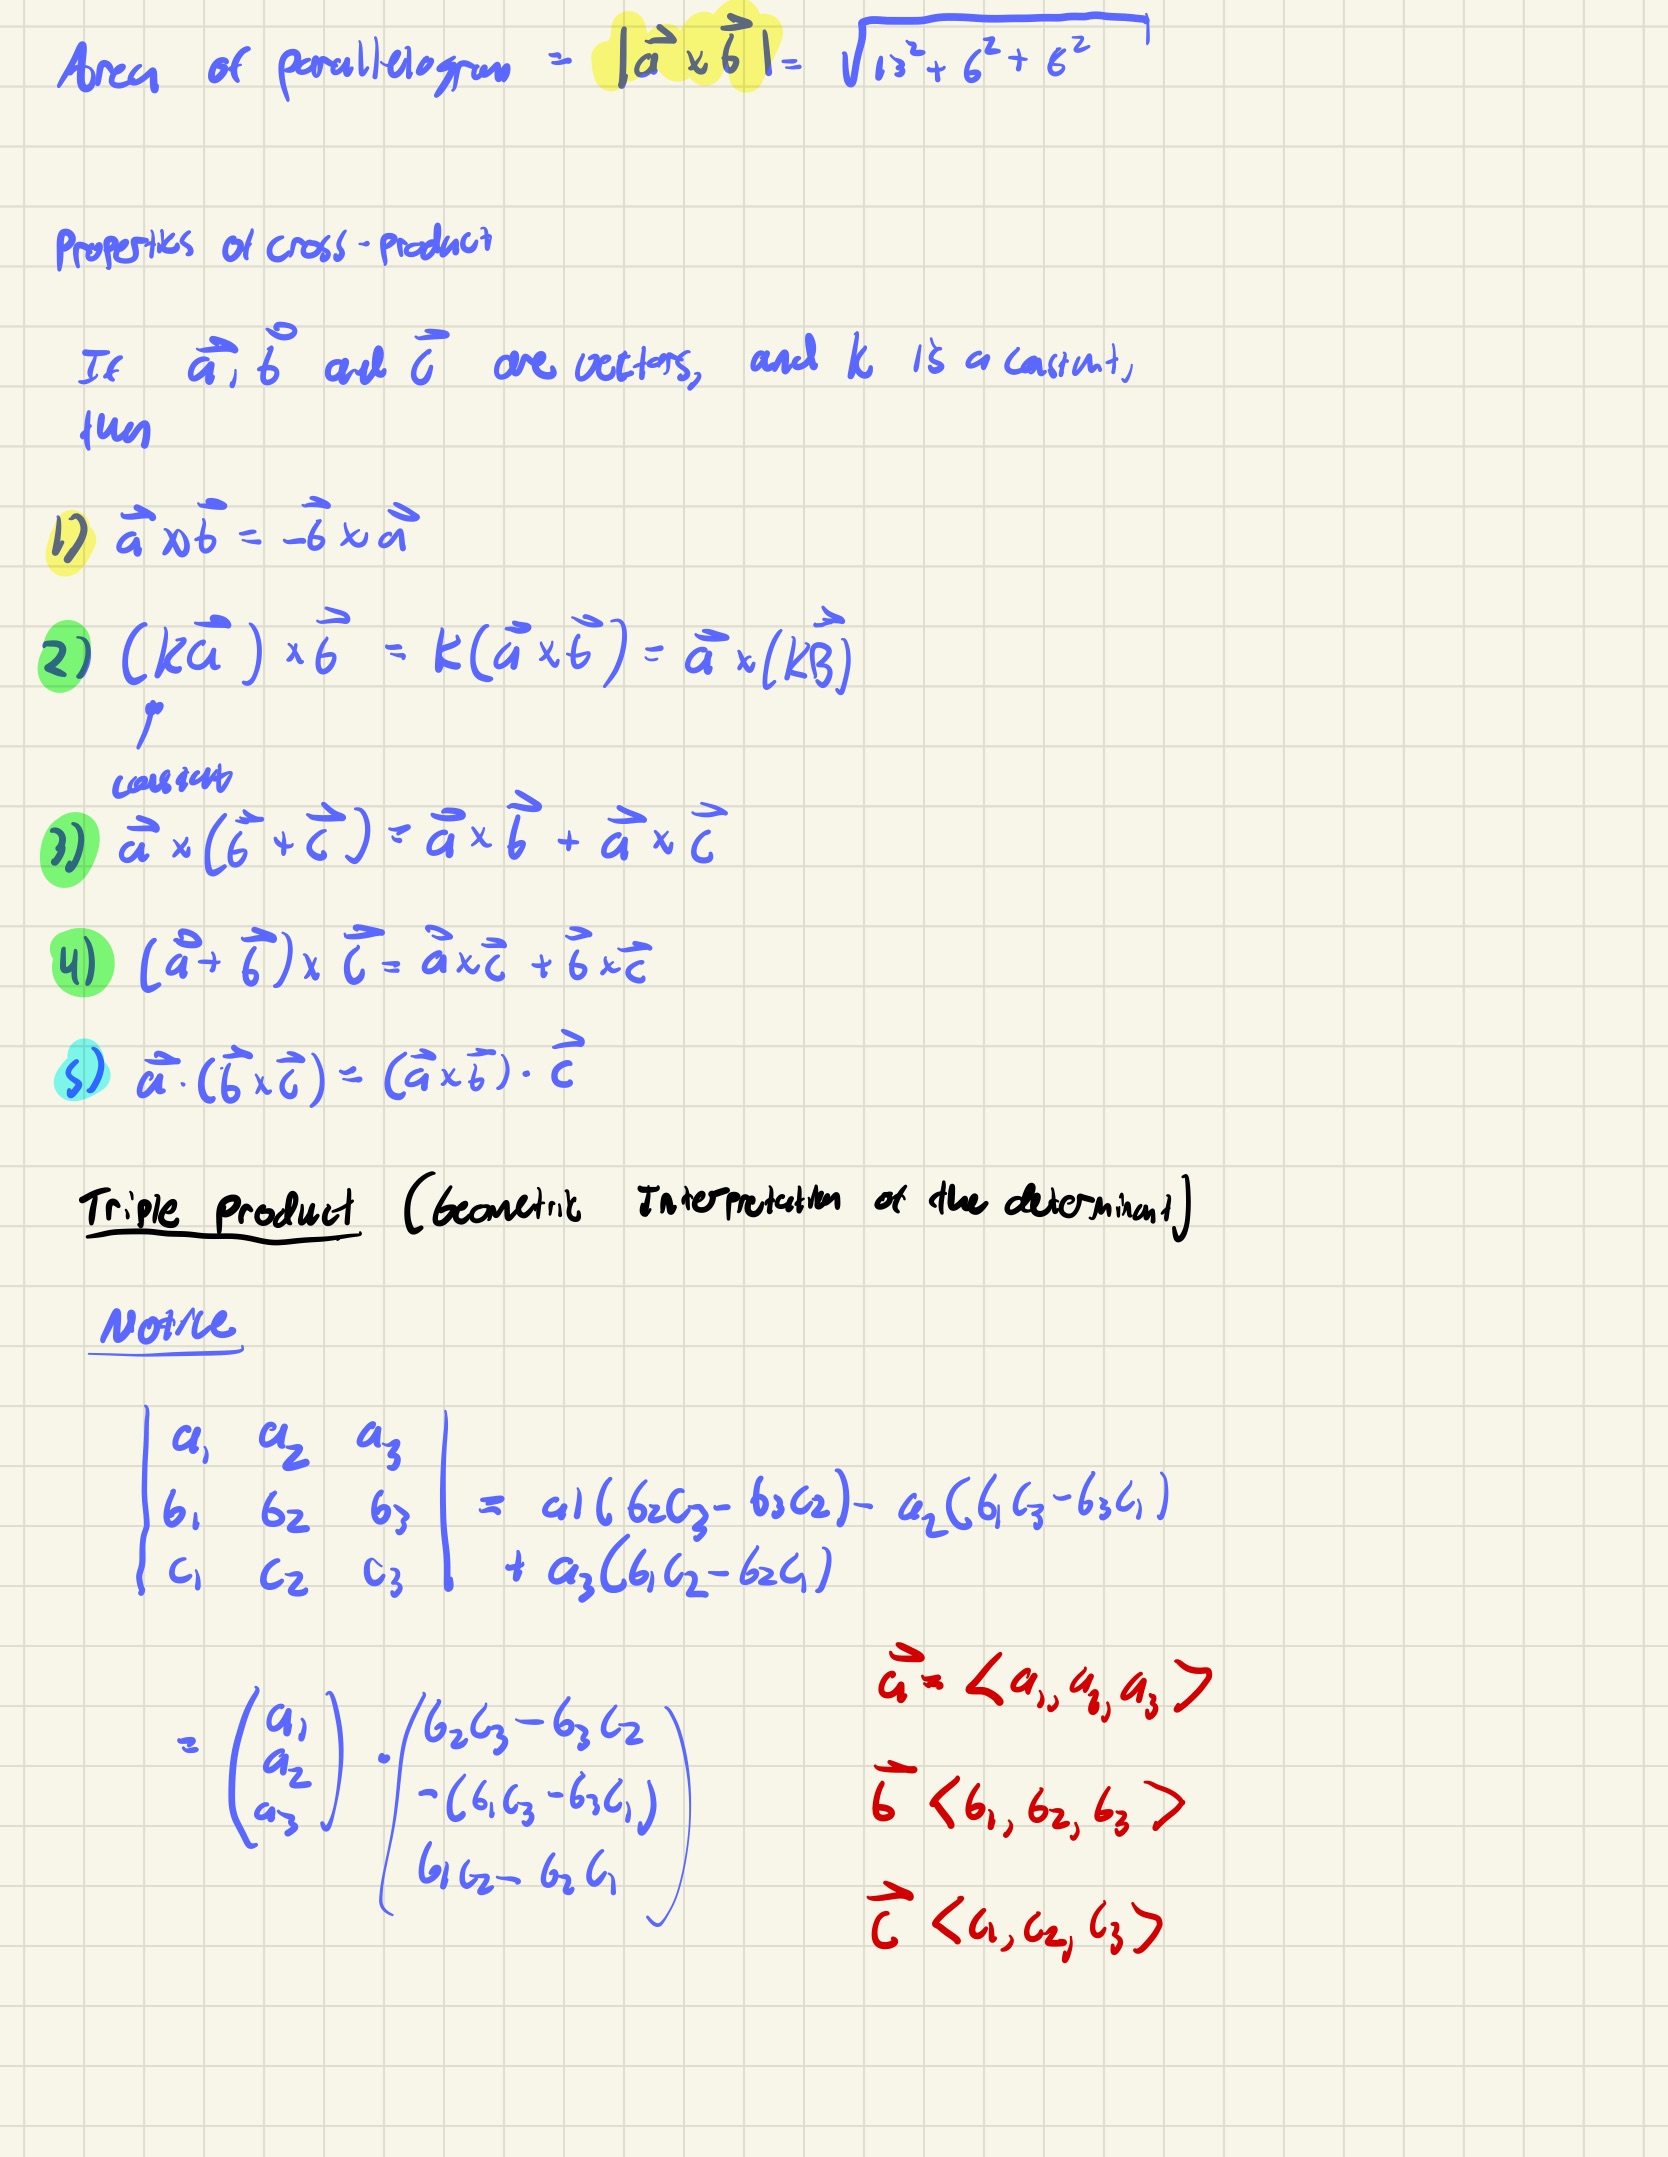 Area of parallelogram = |a⃗ × b⃗| = √(13² + 6² + 6²)
Properties of cross-product
If a⃗, b⃗ and c⃗ are vectors, and k is a constant,
then
1) a⃗ × b⃗ = -b⃗ × a⃗
2) (ka⃗) × b⃗ = k(a⃗ × b⃗) = a⃗ × (kB⃗)
constant
3) a⃗ × (b⃗ + c⃗) = a⃗ × b⃗ + a⃗ × c⃗
4) (a⃗ + b⃗) × c⃗ = a⃗ × c⃗ + b⃗ × c⃗
5) a⃗ · (b⃗ × c⃗) = (a⃗ × b⃗) · c⃗
Triple Product (Geometric Interpretation of the determinant)
Notice
| a₁ a₂ a₃ |
| b₁ b₂ b₃ | = a1(b₂c₃ - b₃c₂) - a₂(b₁c₃ - b₃c₁)
| c₁ c₂ c₃ | + a₃(b₁c₂ - b₂c₁)
= (a₁ a₂ a₃) · (b₂c₃ - b₃c₂
-(b₁c₃ - b₃c₁)
b₁c₂ - b₂c₁)
a⃗ = <a₁, a₂, a₃>
b⃗ <b₁, b₂, b₃>
c⃗ <c₁, c₂, c₃>